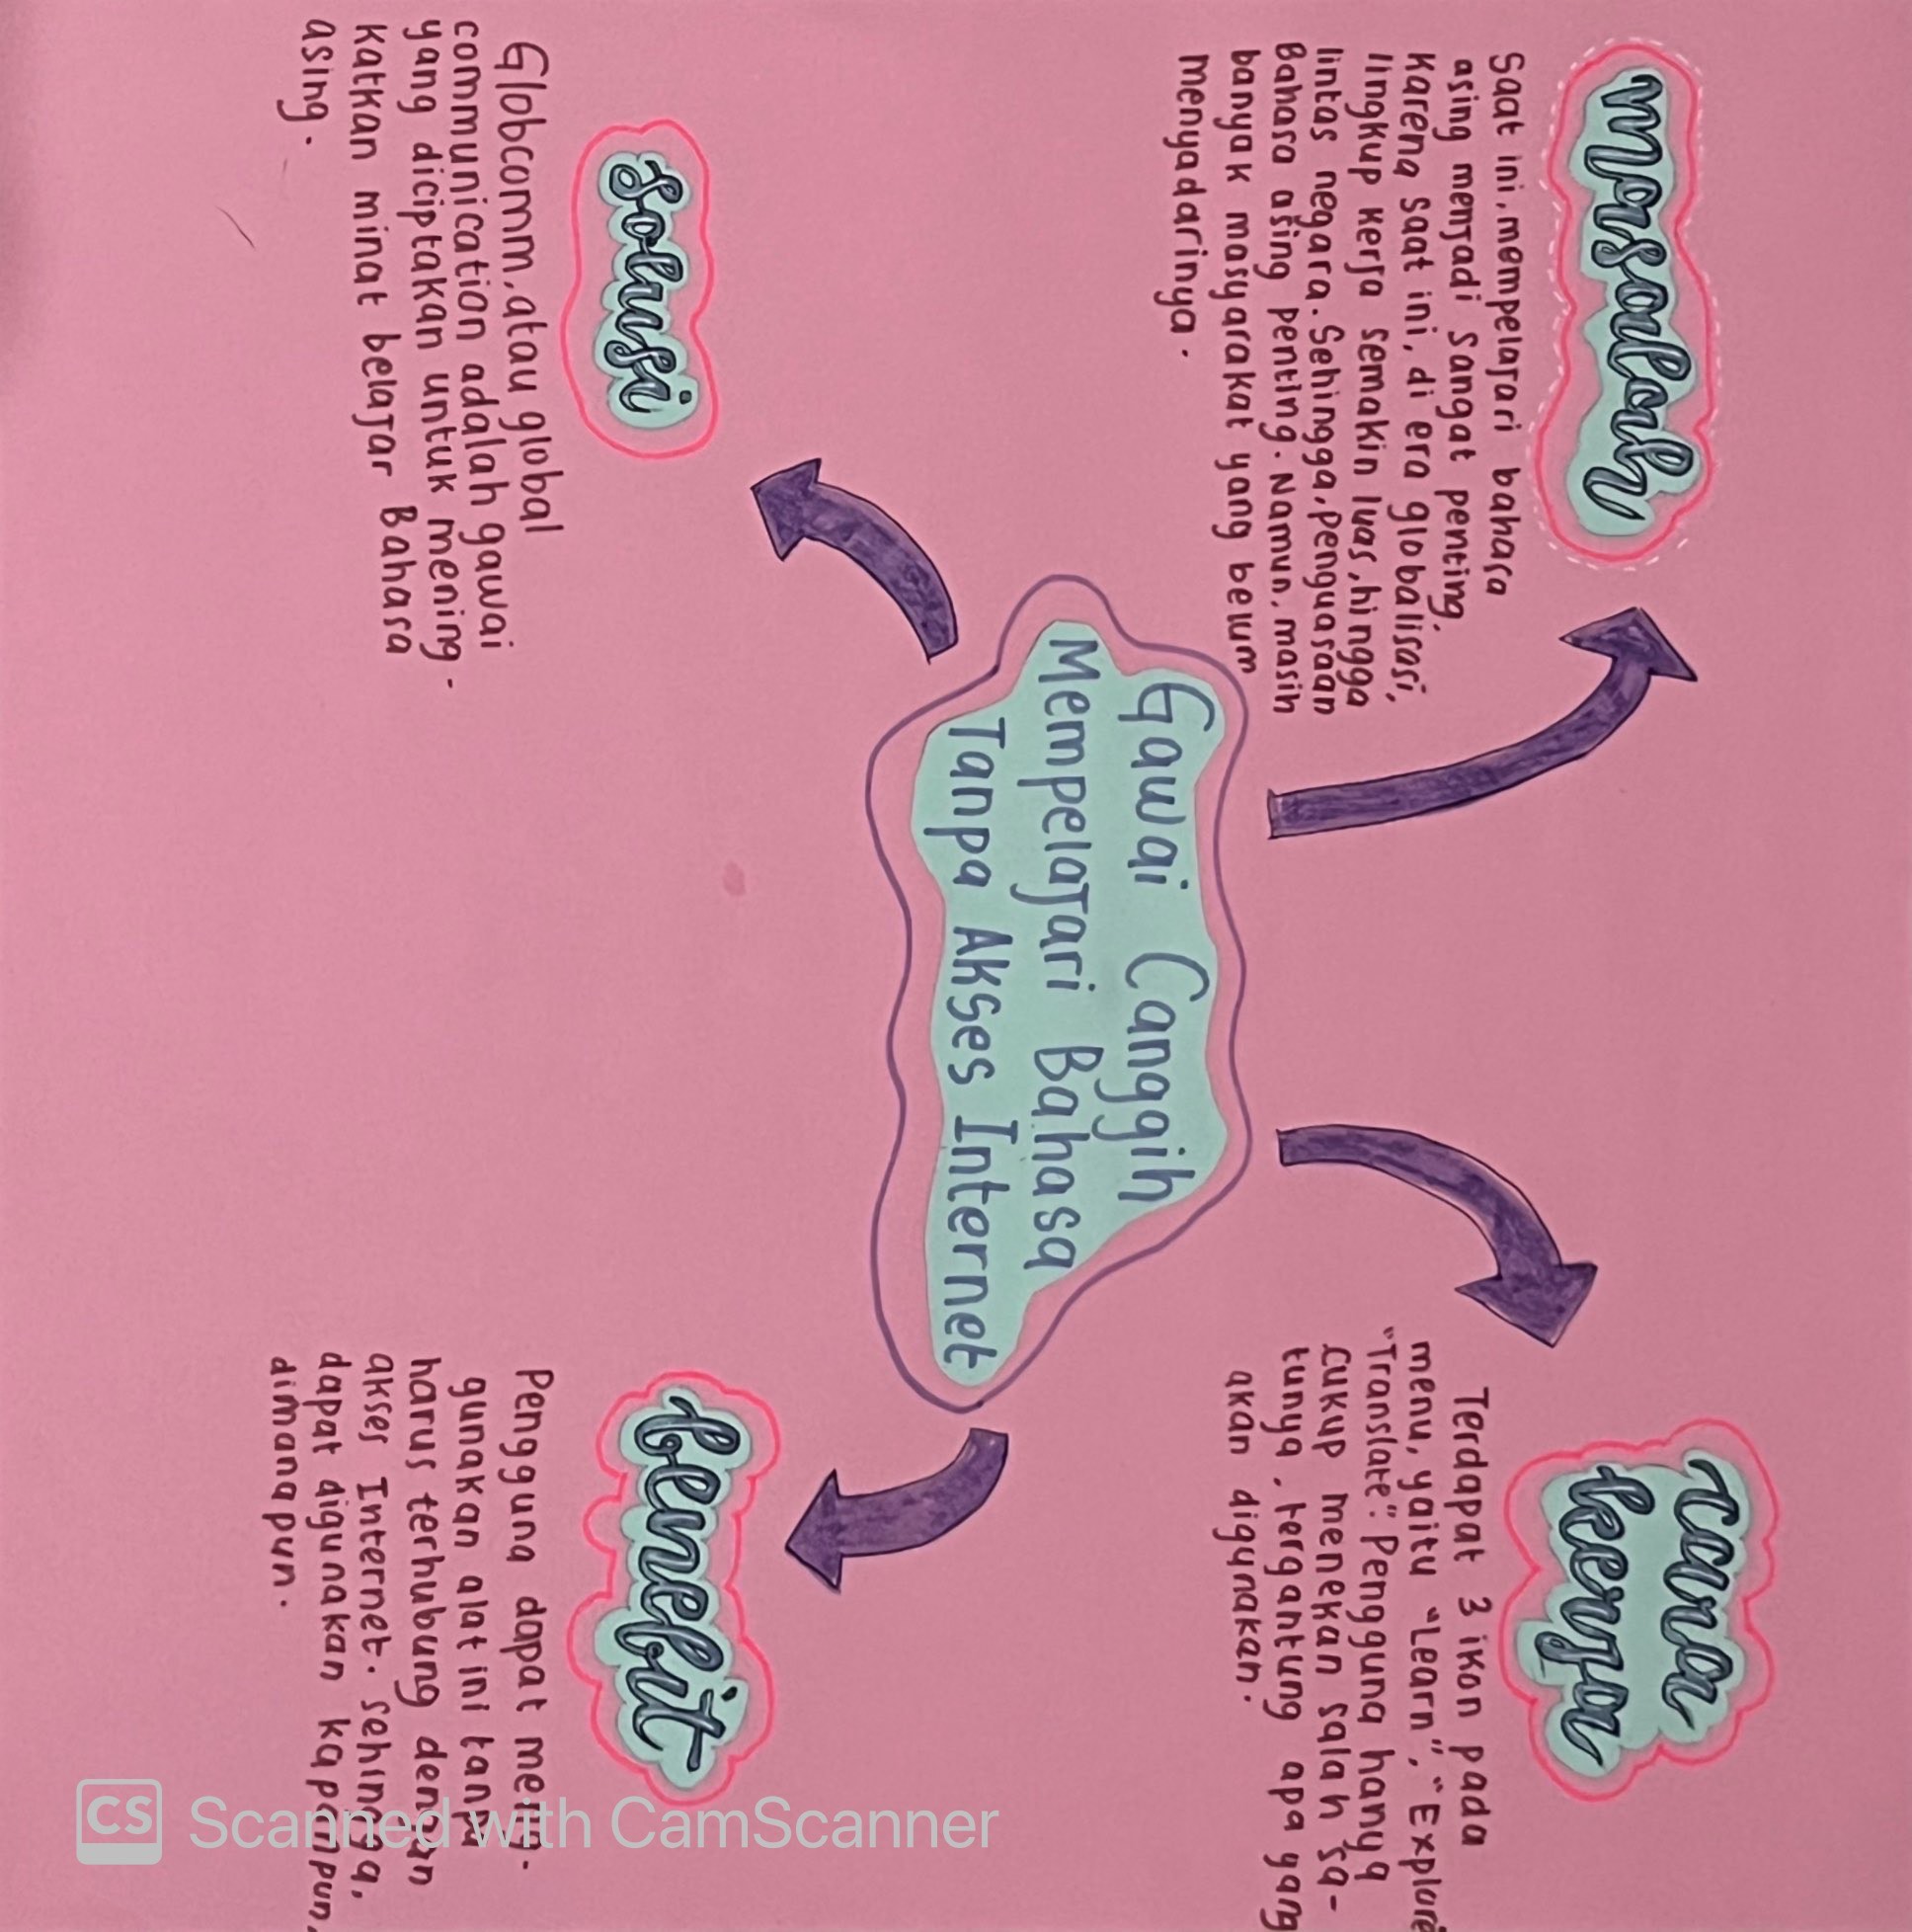 masalah
Saat ini, mempelajari bahasa
asing menjadi sangat penting.
Karena saat ini, di era globalisasi,
lingkup kerja semakin luas, hingga
lintas negara. Sehingga, penguasaan
Bahasa asing penting. Namun, masih
banyak masyarakat yang belum
menyadarinya.
cara
kerja
Terdapat 3 ikon pada
menu, yaitu "Learn", "Explore
"Translate". Pengguna hanya
cukup menekan salah sa-
tunya, tergantung apa yang
akan digunakan.
Gawai Canggih
Mempelajari Bahasa
Tanpa Akses Internet
solusi
Globcomm, atau global
communication adalah gawai
yang diciptakan untuk mening-
katkan minat belajar Bahasa
asing.
benefit
Pengguna dapat meng-
gunakan alat ini tanpa
harus terhubung dengan
akses Internet. sehingga,
dapat digunakan kapanpun,
dimanapun.
CS Scanned with CamScanner